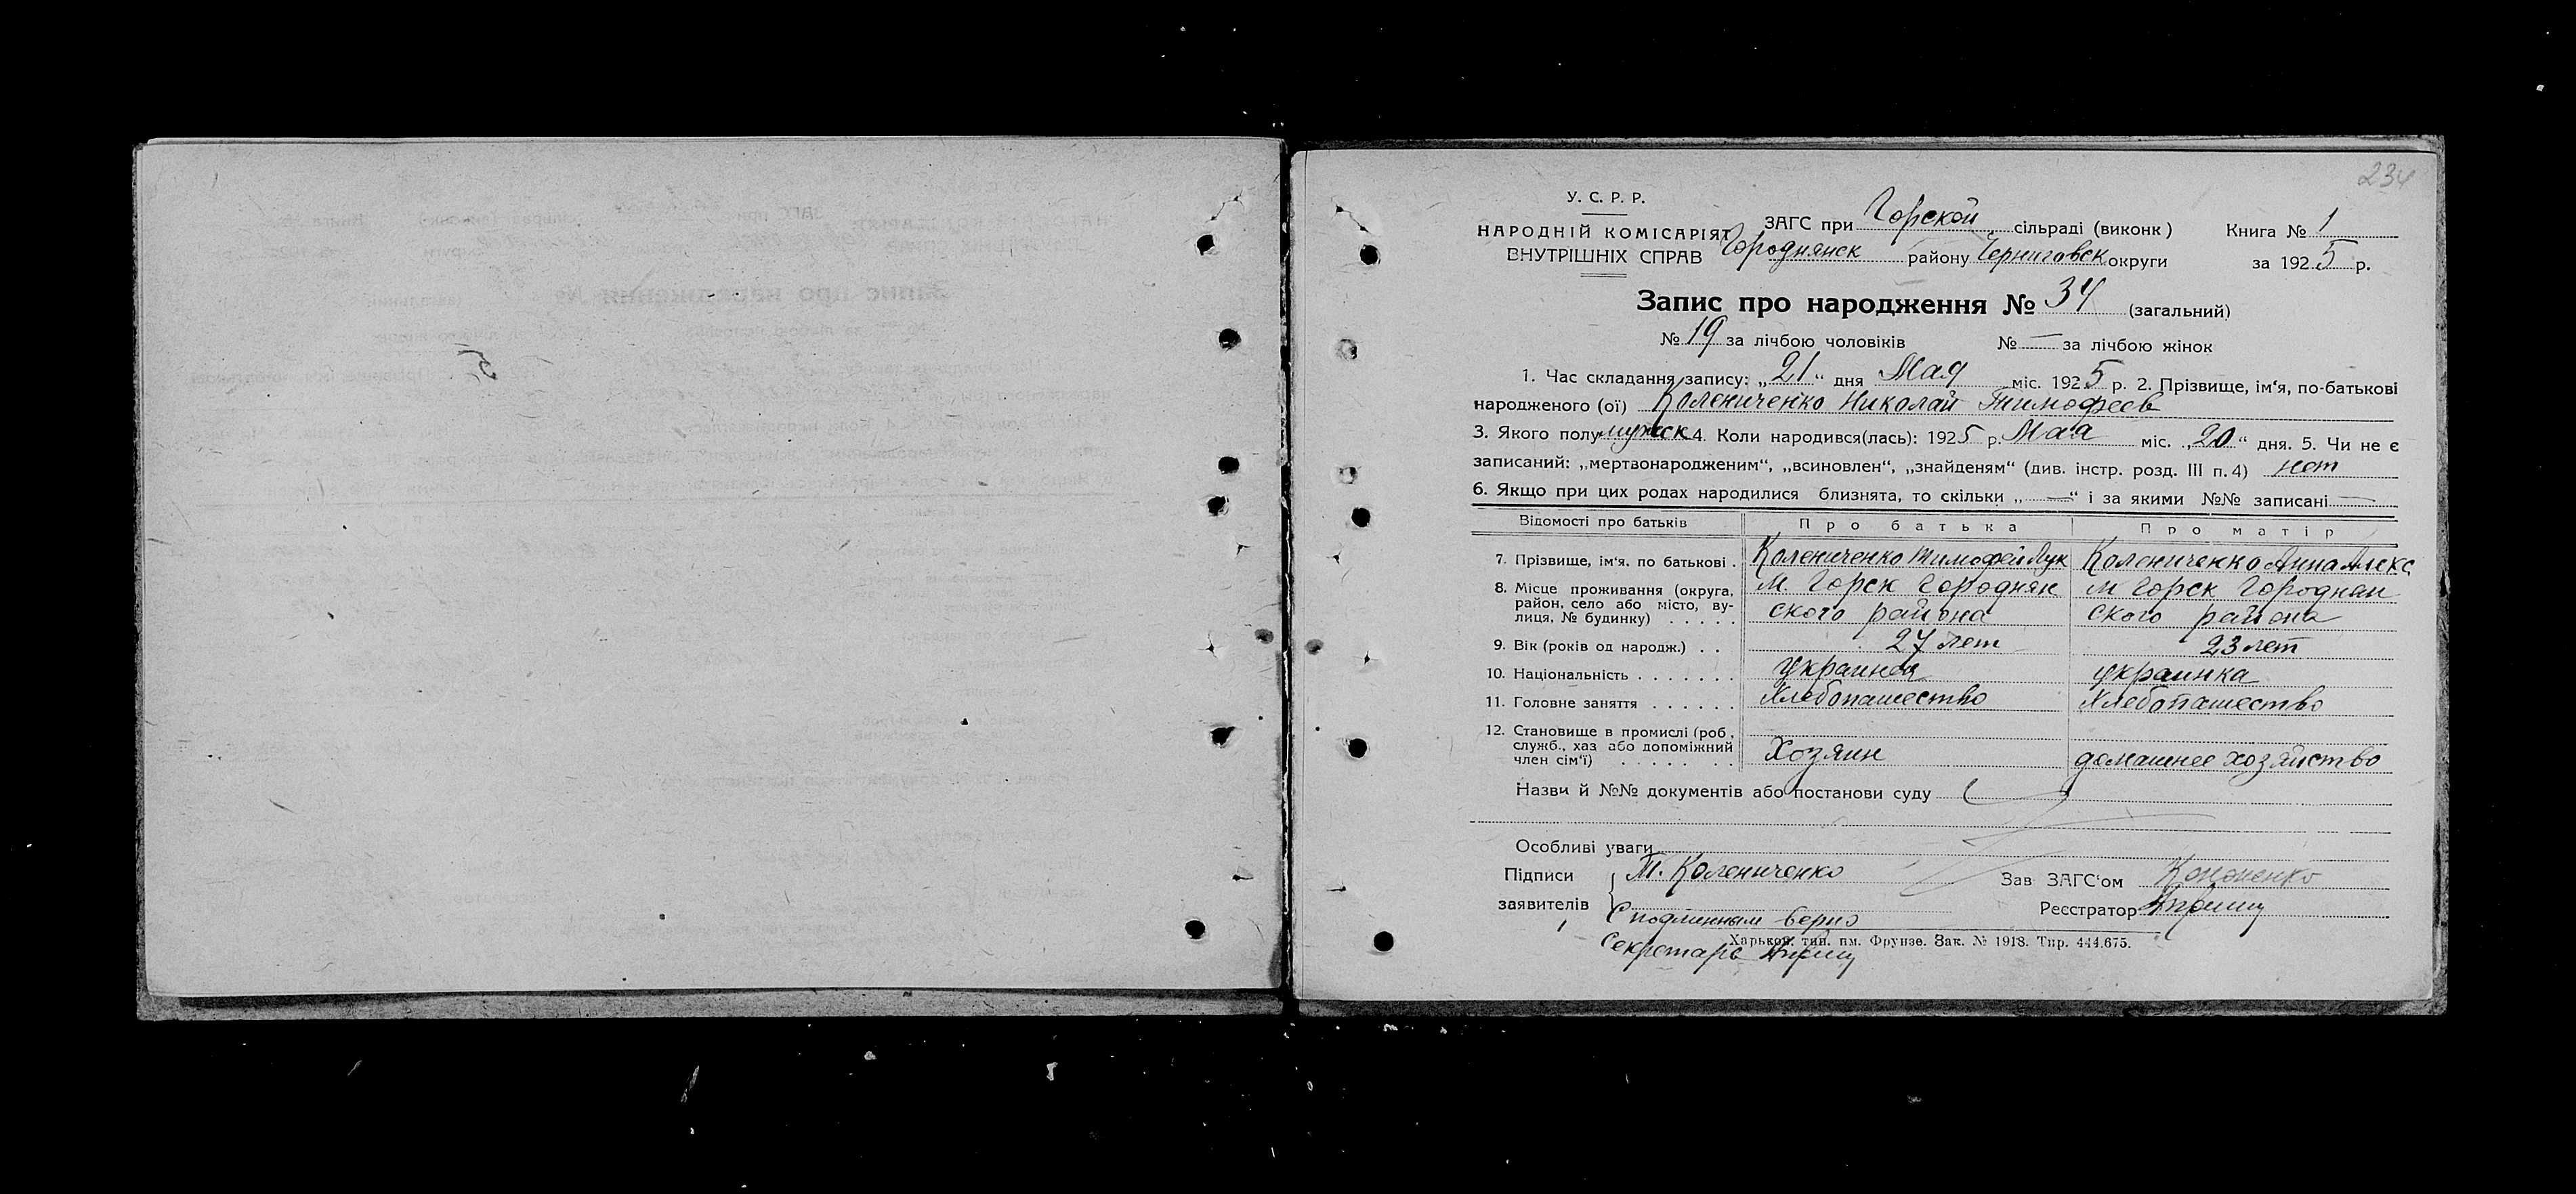 234
У. С. Р. Р.
НАРОДНІЙ КОМІСАРІЯТ
ВНУТРІШНІХ СПРАВ
ЗАГС при Горской сільраді (виконк)
Городнянск району Черниговск округи
Книга № 1
за 1925 р.
Запис про народження № 34 (загальний)
№ 19 за лічбою чоловіків № — за лічбою жінок
1. Час складання запису: „21“ дня Мая міс. 1925 р. 2. Прізвище, ім‘я, по-батькові
народженого (ої) Колениченко Николай Тимофеев
3. Якого полу мужск 4. Коли народився(лась): 1925 р. Мая міс. „20“ дня. 5. Чи не є
записаний: „мертвонародженим“, „всиновлен“, „знайденям“ (див. інстр. розд. III п. 4) нет
6. Якщо при цих родах народилися близнята, то скільки „—“ і за якими №№ записані —
Відомості про батьків Про батька Про матір
7. Прізвище, ім‘я. по батькові . Колениченко Тимофей Лук Колениченко Анна Алекс
8. Місце проживання (округа, район, село або місто, ву- лиця, № будинку) . . . . . м. Горск Городнян ского района м Горск Городнян ского района
9. Вік (років од народж.) . . 27 лет 23 лет
10. Національність . . . . . . . украинец украинка
11. Головне заняття . . . . . . Хлебопашество Хлебопашество
12. Становище в промислі (роб., служб., хаз або допоміжний член сім‘ї) . . . . . . . Хозяин домашнее хозяйство
Назви й №№ документів або постанови суду
Особливі уваги
Підписи заявителів Т. Колениченко
Зав ЗАГС‘ом Кононенко
Реєстратор
С подлинным верно
Секретарь
Харьков. тип. пм. Фрунзе. Зак. № 1918. Тир. 444.675.